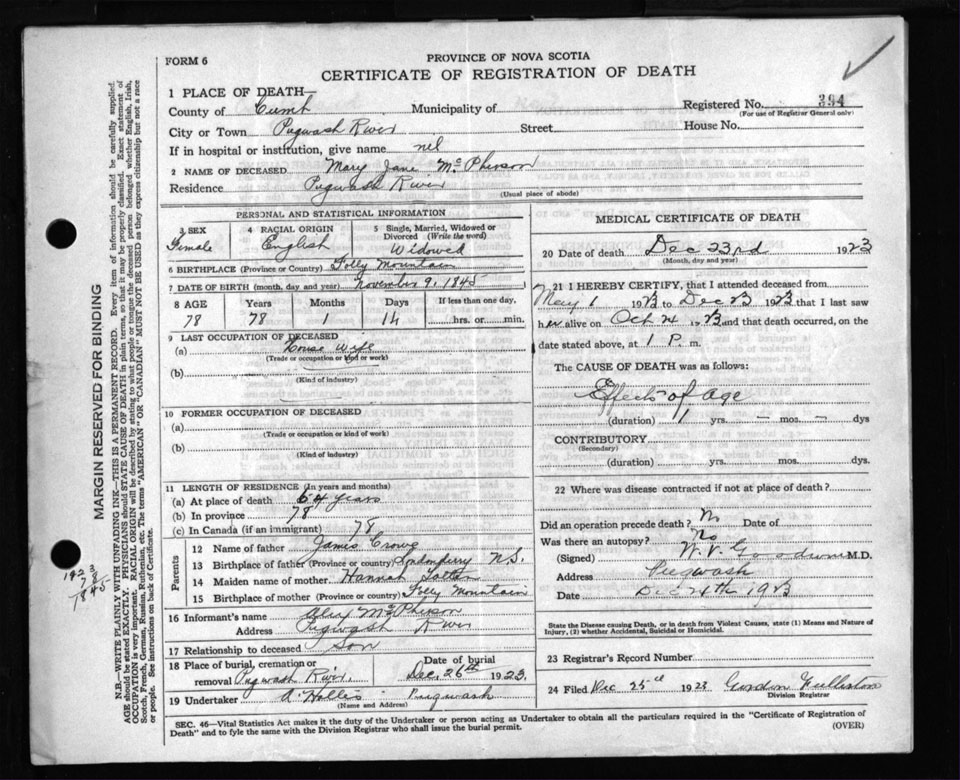 FORM 6
PROVINCE OF NOVA SCOTIA
CERTIFICATE OF REGISTRATION OF DEATH
1 PLACE OF DEATH—
County of Cumb Municipality of Registered No. 394
(For use of Registrar General only)
City or Town Pugwash River Street House No.
If in hospital or institution, give name nil
2 NAME OF DECEASED Mary Jane McPherson
Residence Pugwash River
(Usual place of abode)
PERSONAL AND STATISTICAL INFORMATION
3 SEX 4 RACIAL ORIGIN 5 Single, Married, Widowed or Divorced (Write the word)
Female English Widowed
6 BIRTHPLACE (Province or Country) Folly Mountain
7 DATE OF BIRTH (month, day and year) November 9, 1845
8 AGE Years Months Days If less than one day,
78 78 1 14 hrs. or min.
9 LAST OCCUPATION OF DECEASED
(a) House Wife
(Trade or occupation or kind or work)
(b)
(Kind of industry)
10 FORMER OCCUPATION OF DECEASED
(a)
(Trade or occupation or kind of work)
(b)
(Kind of industry)
11 LENGTH OF RESIDENCE (In years and months)
(a) At place of death 54 years
(b) In province 78
(c) In Canada (if an immigrant) 78
Parents
12 Name of father James Crowe
13 Birthplace of father (Province or Country) Londonderry N.S.
14 Maiden name of mother Hannah
15 Birthplace of mother (Province or Country) Folly Mountain
16 Informant's name Alex McPherson
Address Pugwash River
17 Relationship to deceased Son
18 Place of burial, cremation or removal Pugwash River. Date of burial Dec. 26th 1923.
19 Undertaker A Hollis Pugwash
(Name and Address)
MEDICAL CERTIFICATE OF DEATH
20 Date of death Dec 23rd 1923
(Month, day and year)
21 I HEREBY CERTIFY, that I attended deceased from
May 1 1923 to Dec 23 1923 that I last saw
her alive on Oct 24 1923 and that death occurred, on the
date stated above, at 1 P. m.
The CAUSE OF DEATH was as follows:
Effects of Age
(duration) 1 yrs. — mos. — dys
CONTRIBUTORY
(Secondary)
(duration) yrs. mos. dys.
22 Where was disease contracted if not at place of death?
Did an operation precede death? No Date of
Was there an autopsy? No
(Signed) W. V. Goodwin M.D.
Address Pugwash
Date Dec 24th 1923
State the Disease causing Death, or in death from Violent Causes, state (1) Means and Nature of Injury, (2) whether Accidental, Suicidal or Homicidal.
23 Registrar's Record Number
24 Filed Dec 25th 1923 Gordon
Division Registrar
SEC. 46—Vital Statistics Act makes it the duty of the Undertaker or person acting as Undertaker to obtain all the particulars required in the "Certificate of Registration of
Death" and to fyle the same with the Division Registrar who shall issue the burial permit.
(OVER)
MARGIN RESERVED FOR BINDING
N.B.—WRITE PLAINLY WITH UNFADING INK—THIS IS A PERMANENT RECORD. Every item of information should be carefully supplied.
AGE should be stated EXACTLY. PHYSICIANS should STATE CAUSE OF DEATH in plain terms, so that it may be properly classified. Exact statement of
OCCUPATION is very important. RACIAL ORIGIN will be described by stating to what people or tongue the deceased person belonged whether English, Irish,
Scotch, French, German, Russian, Ruthenian, etc. The terms "AMERICAN" OR "CANADIAN" MUST NOT BE USED as they express citizenship but not a race
or people. See instructions on back of Certificate.
1923
78
1845